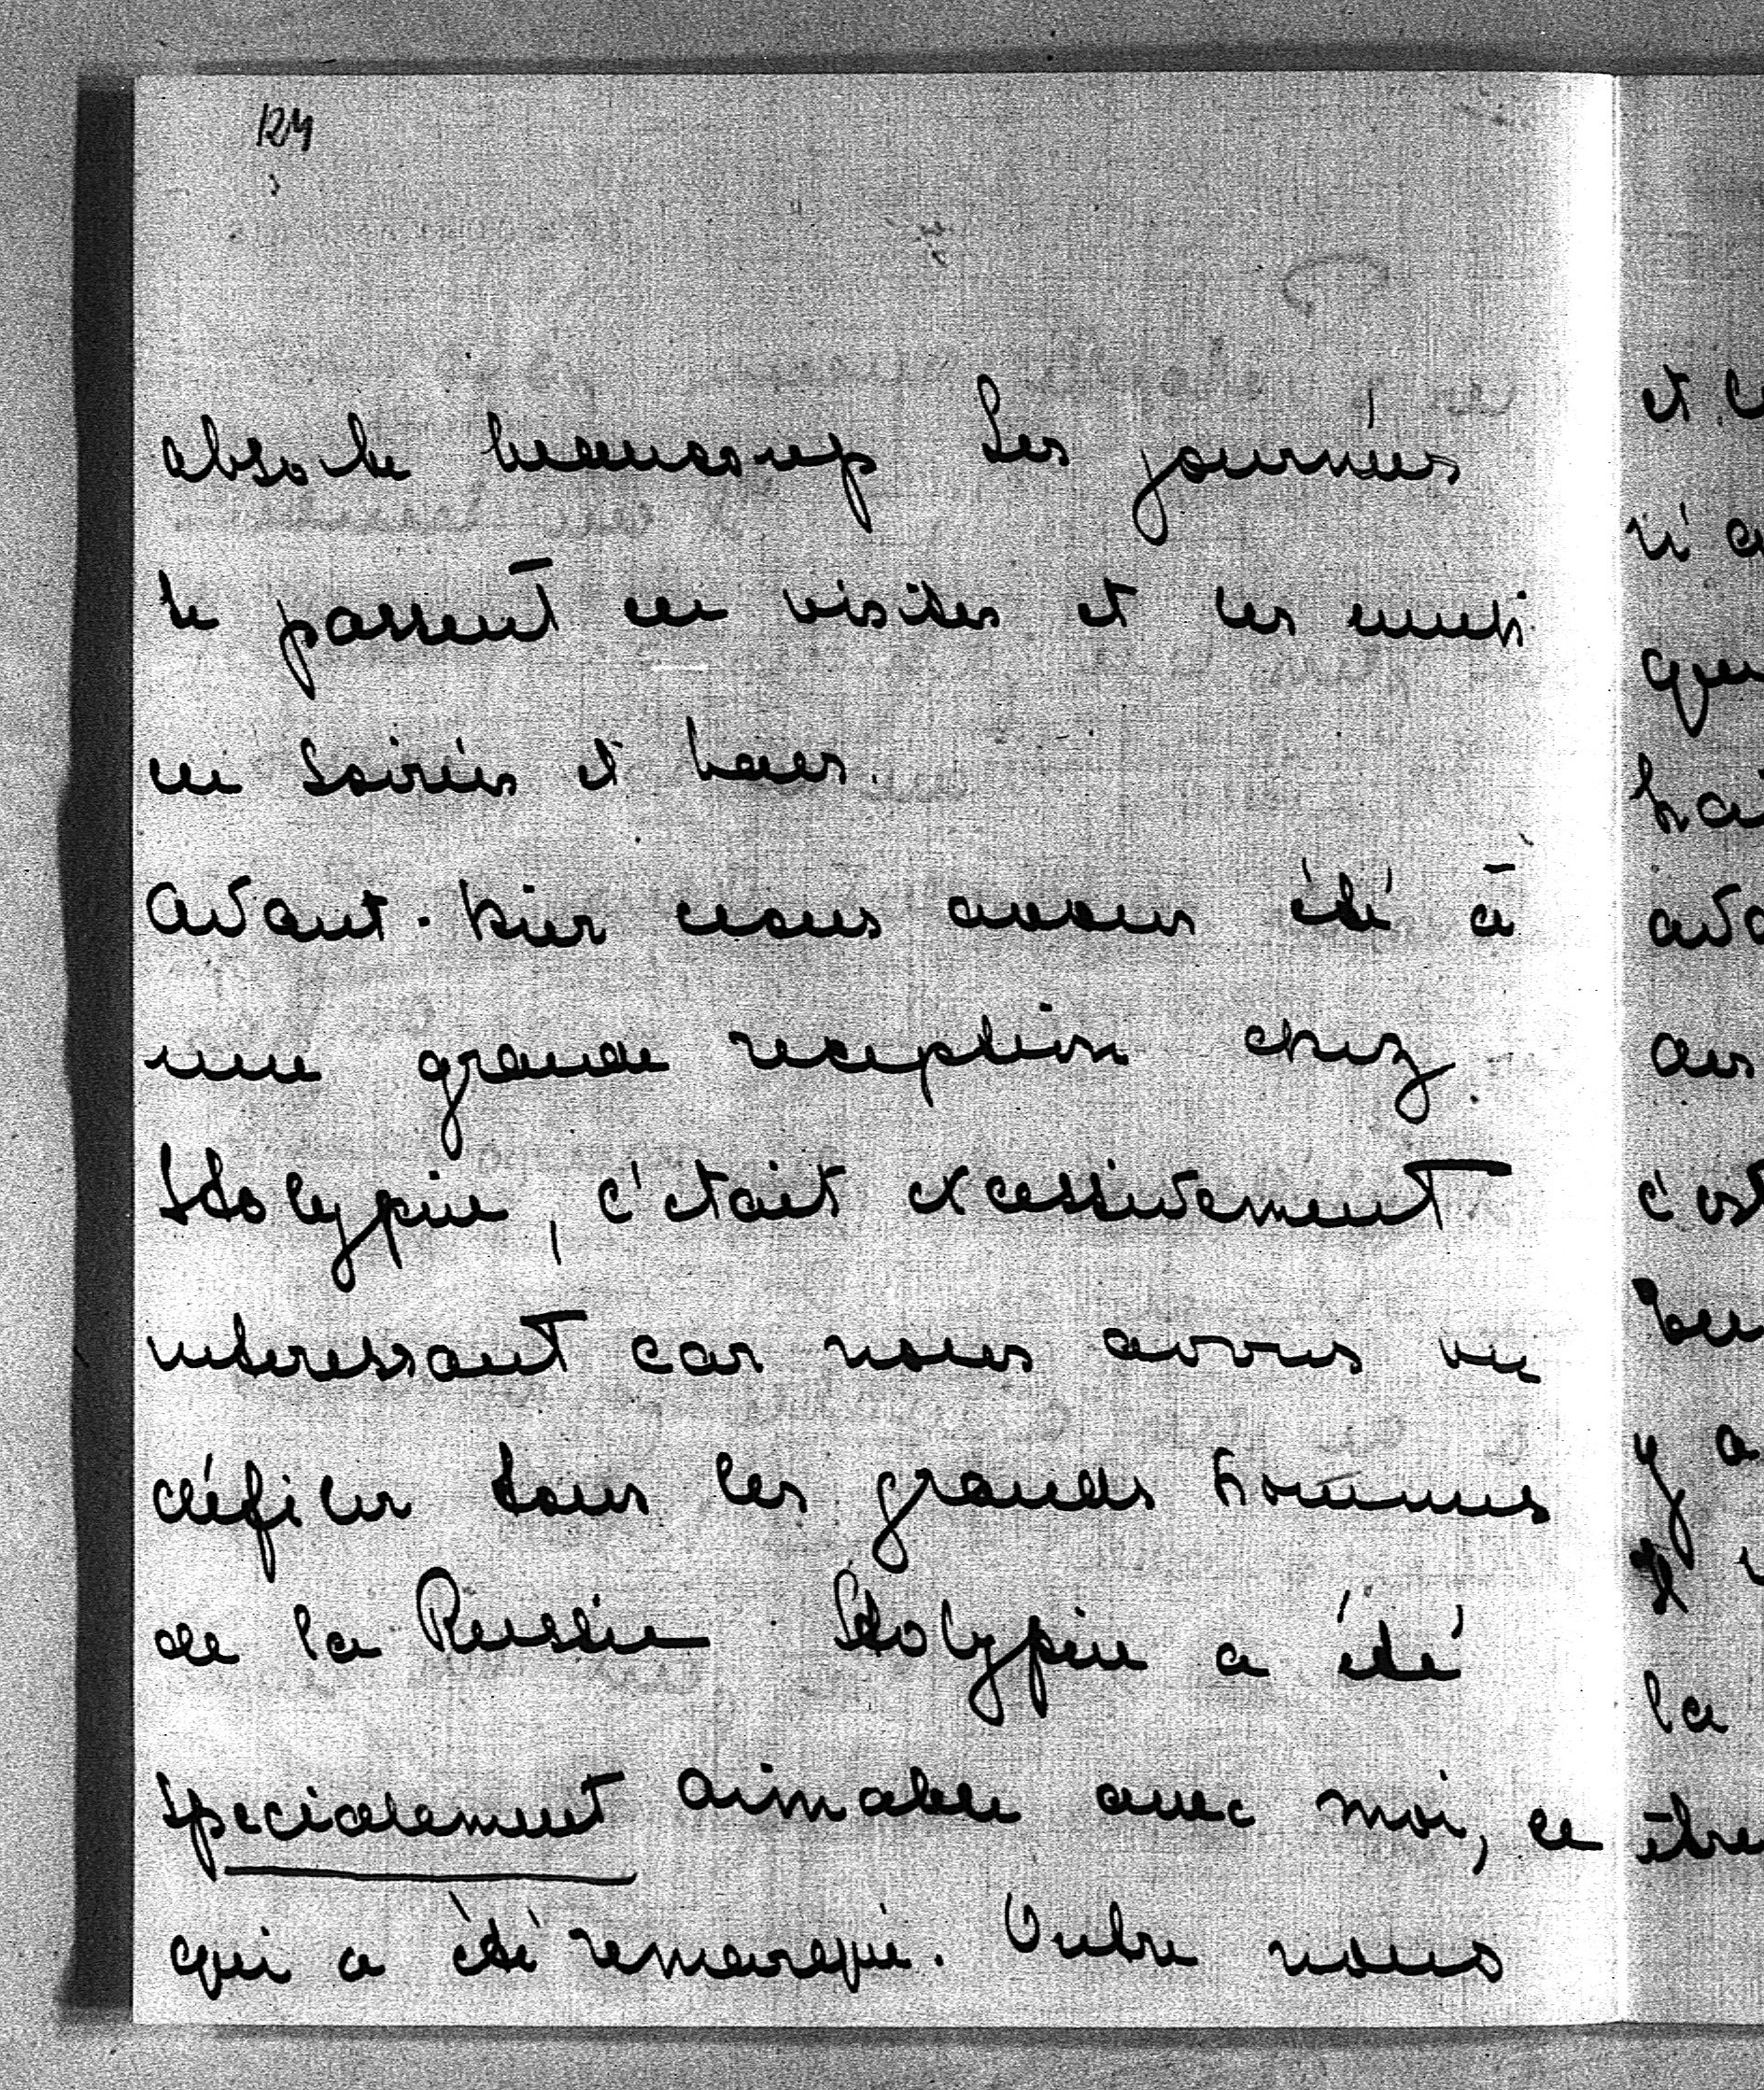 124
absorbe beaucoup Les journées
se passent en visites et les nuits
en soirées et bals.
Avant-hier nous avons été à
une grande reception chez
Stolypine, c'était excessivement
interessant car nous avons vu
défiler tous les grands hommes
de la Russie. Stolypine a été
specialement aimable avec moi, ce
qui a été remarqué. Entre nous
et
c'est
y a
la
être